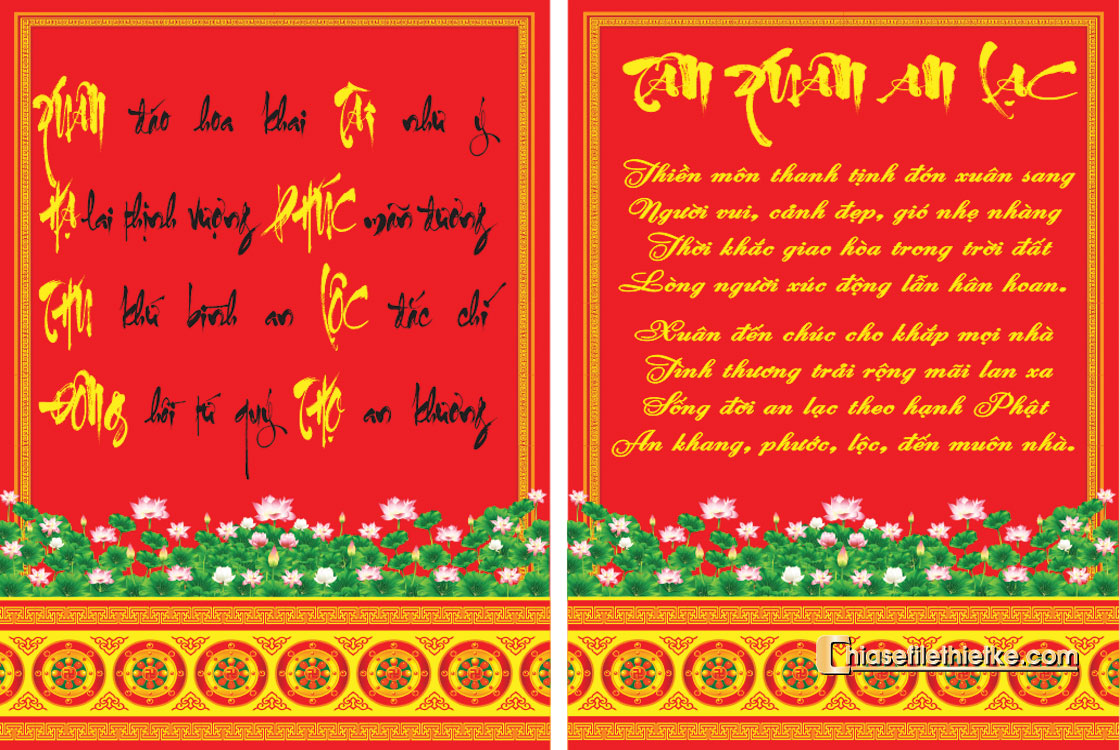 XUÂN đáo hoa khai TÀI như ý
HẠ lai thịnh vượng PHÚC mãn đường
THU khứ bình an LỘC đắc chí
ĐÔNG hồi tứ quý THỌ an khương
TÂN XUÂN AN LẠC
Thiền môn thanh tịnh đón xuân sang
Người vui, cảnh đẹp, gió nhẹ nhàng
Thời khắc giao hòa trong trời đất
Lòng người xúc động lẫn hân hoan.
Xuân đến chúc cho khắp mọi nhà
Tình thương trải rộng mãi lan xa
Sống đời an lạc theo hạnh Phật
An khang, phước, lộc, đến muôn nhà.
Chiasefilethietke.com